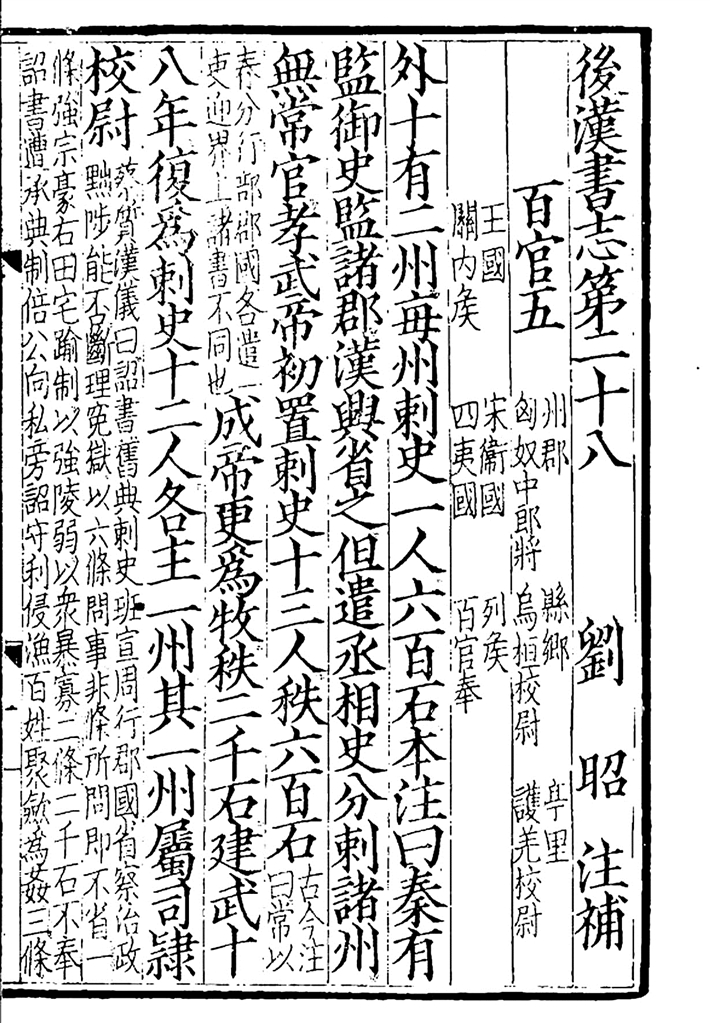 後漢書志第二十八　劉昭注補
百官五　州郡　縣鄉　亭里
匈奴中郎將　烏桓校尉　護羌校尉
王國　宋衞國　列矦
關內矦　四夷國　百官奉
外十有二州每州刺史一人六百石本注曰秦有
監御史監諸郡漢興省之但遣丞相史分刺諸州
無常官孝武帝初置刺史十三人秩六百石古今注
曰常以
春分行部郡國各遣一
吏迎界上諸書不同也
成帝更爲牧秩二千石建武十
八年復爲刺史十二人各主一州其一州屬司隸
校尉
蔡質漢儀曰詔書舊典刺史班宣周行郡國省察治政
黜陟能否斷理寃獄以六條問事非條所問即不省一
條強宗豪右田宅踰制以強陵弱以衆暴寡二條二千石不奉
詔書遵承典制倍公向私旁詔守利侵漁百姓聚斂爲姦三條